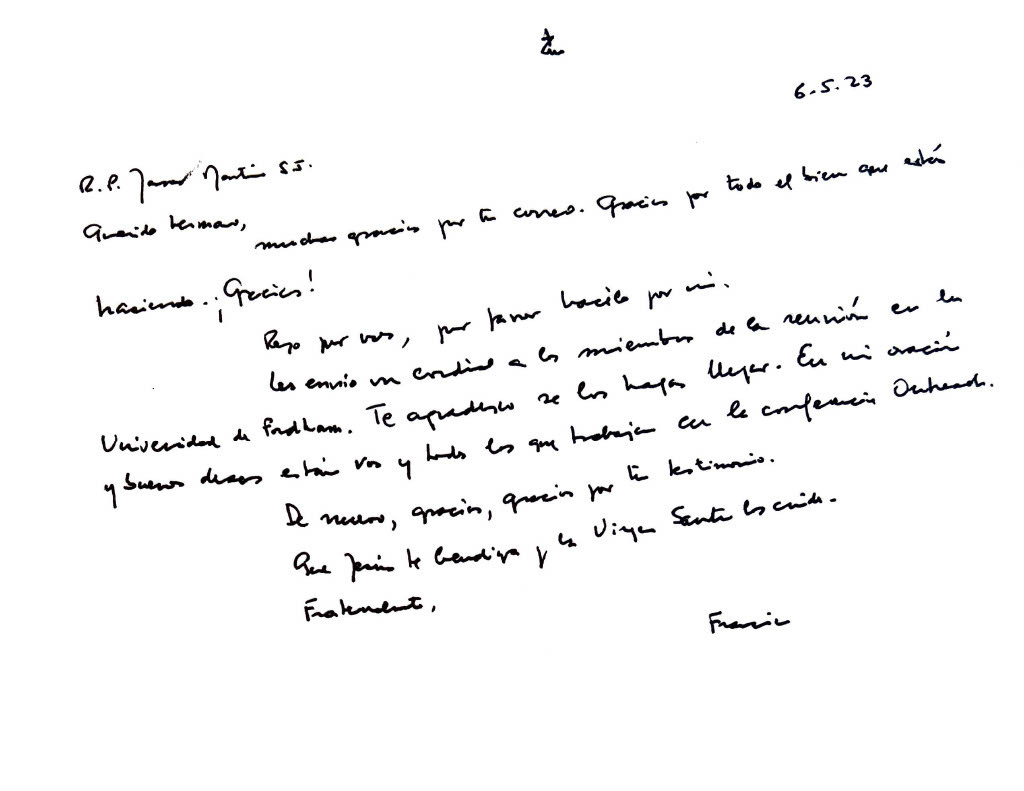 6.5.23
R.P. James Martin S.J.
Querido hermano,
muchas gracias por tu correo. Gracias por todo el bien que estás
haciendo. ¡Gracias!
Rezo por vos, por favor hacelo por mi.
Les envío un cordial a los miembros de la reunión en la
Universidad de Fordham. Te agradezco se los hagas llegar. En mi oración
y buenos deseos están vos y todos los que trabajan en la conferencia Outreach.
De nuevo, gracias, gracias por tu testimonio.
Que Jesús te bendiga y la Virgen Santa los cuide.
Fraternalmente,
Francisco